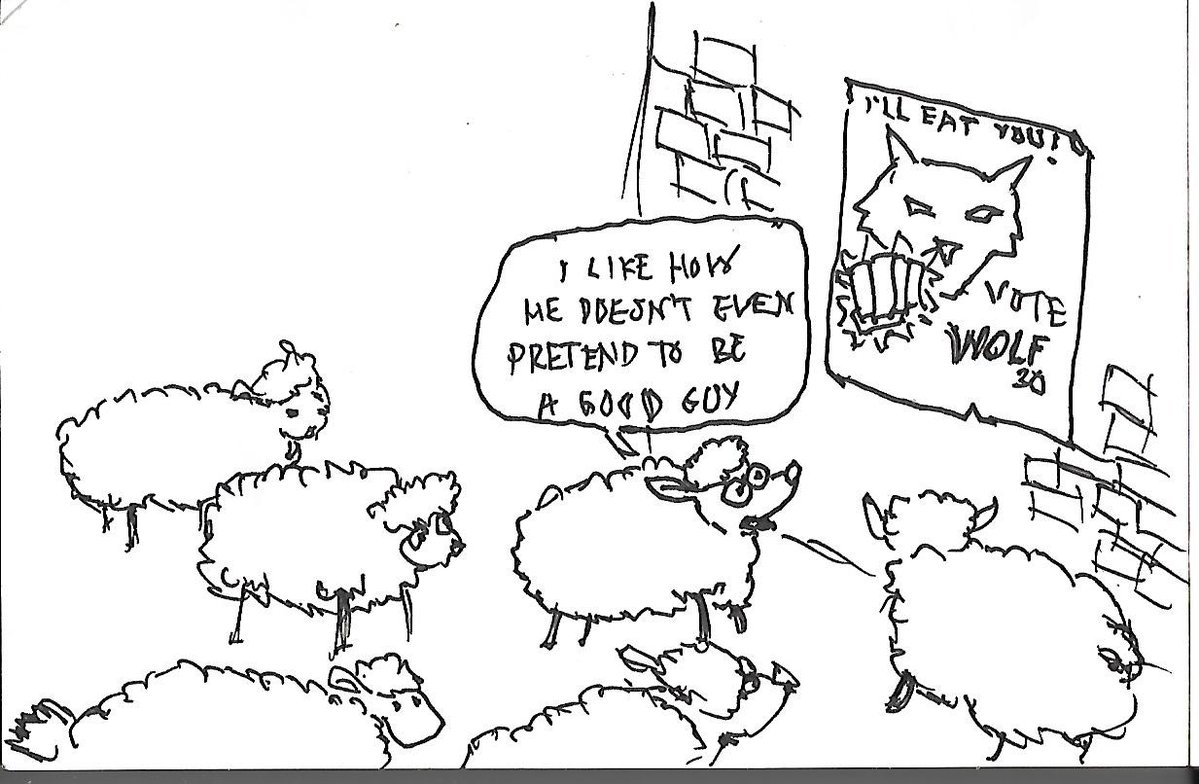 I'LL EAT YOU!
VOTE
WOLF
30
I LIKE HOW
HE DOESN'T EVEN
PRETEND TO BE
A GOOD GUY